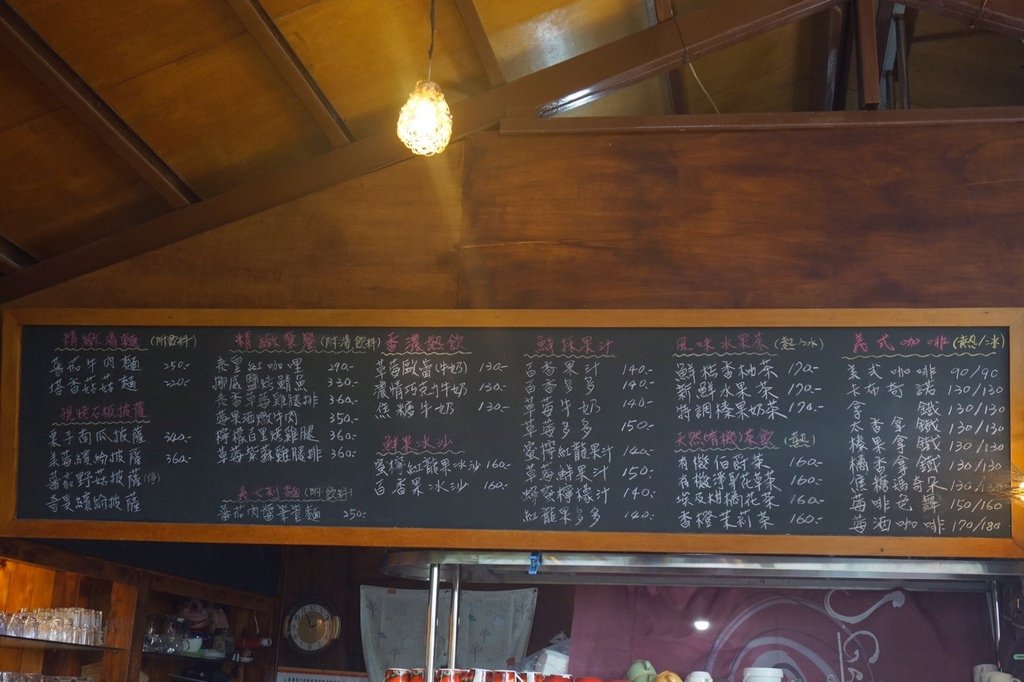 精緻湯麵 (附飲料)
蕃茄牛肉麵 250.-
塔香菇菇麵 220.-
現烤石板披薩
栗子南瓜披薩 340.-
莓繽紛披薩 360.-
蕃茄野菇披薩
奇異繽紛披薩
精緻套餐 (附湯飲料)
泰皇紅咖哩 290.-
挪威鹽烤鯖魚 330.-
香草莓雞腿排 360.-
莓果酒燉牛肉 350.-
檸檬百里烤雞腿 360.-
草莓紫蘇雞腿排 360.-
義大利麵 (附飲料)
蕃茄肉醬筆管麵 250.-
香濃熱飲
草莓歐蕾(牛奶) 130.-
濃情巧克力牛奶 130.-
焦糖牛奶 130.-
鮮果冰沙
蜜檸紅龍果冰沙 160.-
百香果冰沙 160.-
鮮採果汁
百香果汁 140.-
百香多多 140.-
草莓牛奶 140.-
草莓多多 150.-
蜜檸紅龍果汁 140.-
草莓鮮果汁 150.-
蜂蜜檸檬汁 140.-
紅龍果多多 140.-
風味水果茶 (熱/冰)
鮮桔香柚茶 170.-
新鮮水果茶 170.-
特調榛果奶茶 170.-
天然有機茶飲 (熱)
有機伯爵茶 160.-
有機淨身花草茶 160.-
埃及柑橘花茶 160.-
香橙茉莉茶 160.-
義式咖啡 (熱/冰)
義式咖啡 90/90
卡布奇諾 130/130
拿鐵 130/130
太香拿鐵 130/130
榛果拿鐵 130/130
橘香拿鐵 130/130
焦糖瑪奇朵 130/130
莓啡色舞 150/160
莓酒咖啡 170/180